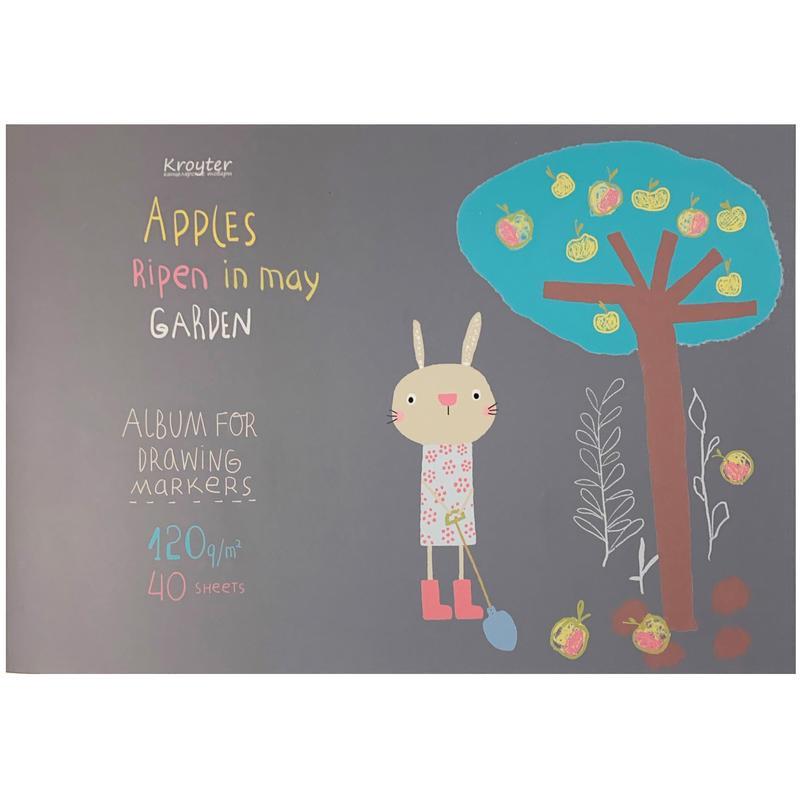 Kroyter
канцелярские товары
APPLES
Ripen in may
GARDEN
ALBUM FOR
DRAWING
MARKERS
120g/m²
40 SHEETS